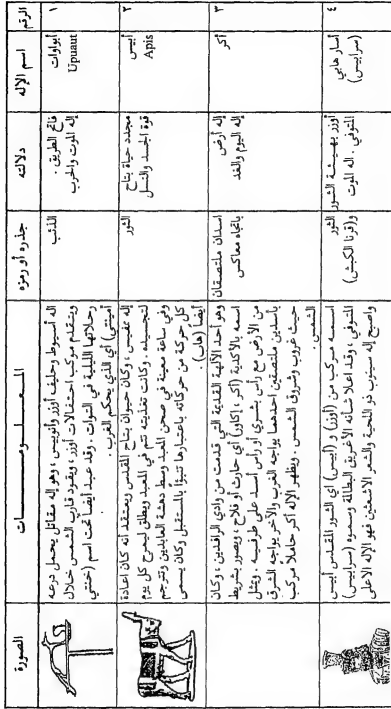 الرقم
اسم الإله
دلالته
جذره أو رمزه
المعلومات
الصورة
١
أبواوات
Upuaut
فاتح الطريق.
إله الموت والحرب
الذئب
إله أسيوط وحليف أوزر وأنوبيس، وهو إله مقاتل يحمل درعه
ويتقدم موكب احتفالات أوزر، ويقود قارب الشمس خلال
رحلاتها الليلية في التوات. وقد عبد أيضاً تحت اسم (خنتي
أمينتي) أي الذي يحكم الغرب.
٢
أبيس
Apis
مجدد حياة بتاح
قوة الجسد والنسل
الثور
إله ممفيس، وكان حيوان بتاح المقدس ويعتقد أنه كان إعادة
لتجسيده، وكانت تغذيته تتم في المعبد ويطلق ليمرح كل يوم
وفي ساعة معينة في صحن المعبد وسط دهشة العابدين وتترجم
كل حركة من حركاته باعتبارها تنبؤا بالمستقبل وكان يسمى
أيضاً (هاب).
٣
أكر
إله أرض
إله اليوم والغد
أسدان ملتصقان
باتجاه معاكس
وهو أحد الآلهة القديمة التي قدمت من وادي الرافدين، وكان
اسمه بالأكدية (أكر، إكاور) أي حارث أو فلاح، ويصور بشريط
من الأرض مع رأس بشري أو رأس أسد على طرفيه. ويمثل
بأسدين ملتصقين احدهما يواجه الغرب والآخر يواجه الشرق
حيث غروب وشروق الشمس. ويظهر الإله أكر حاملا مركب
الشمس.
٤
أسار هابي
(سرابيس)
أوزر بهيئة الثور
المتوفي. إله الموت
الثور
و(قرنا الكبش)
اسمه مركب من (أوزر) و (أبيس) أي الثور المقدس أبيس
المتوفي، وقد اعلا شأنه الأغريق البطالمة وسموه (سرابيس)
واصبح إله سينوب ذو اللحية والشعر الاشعثين فهو الإله الاعلى